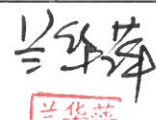 兰华萍
兰华萍